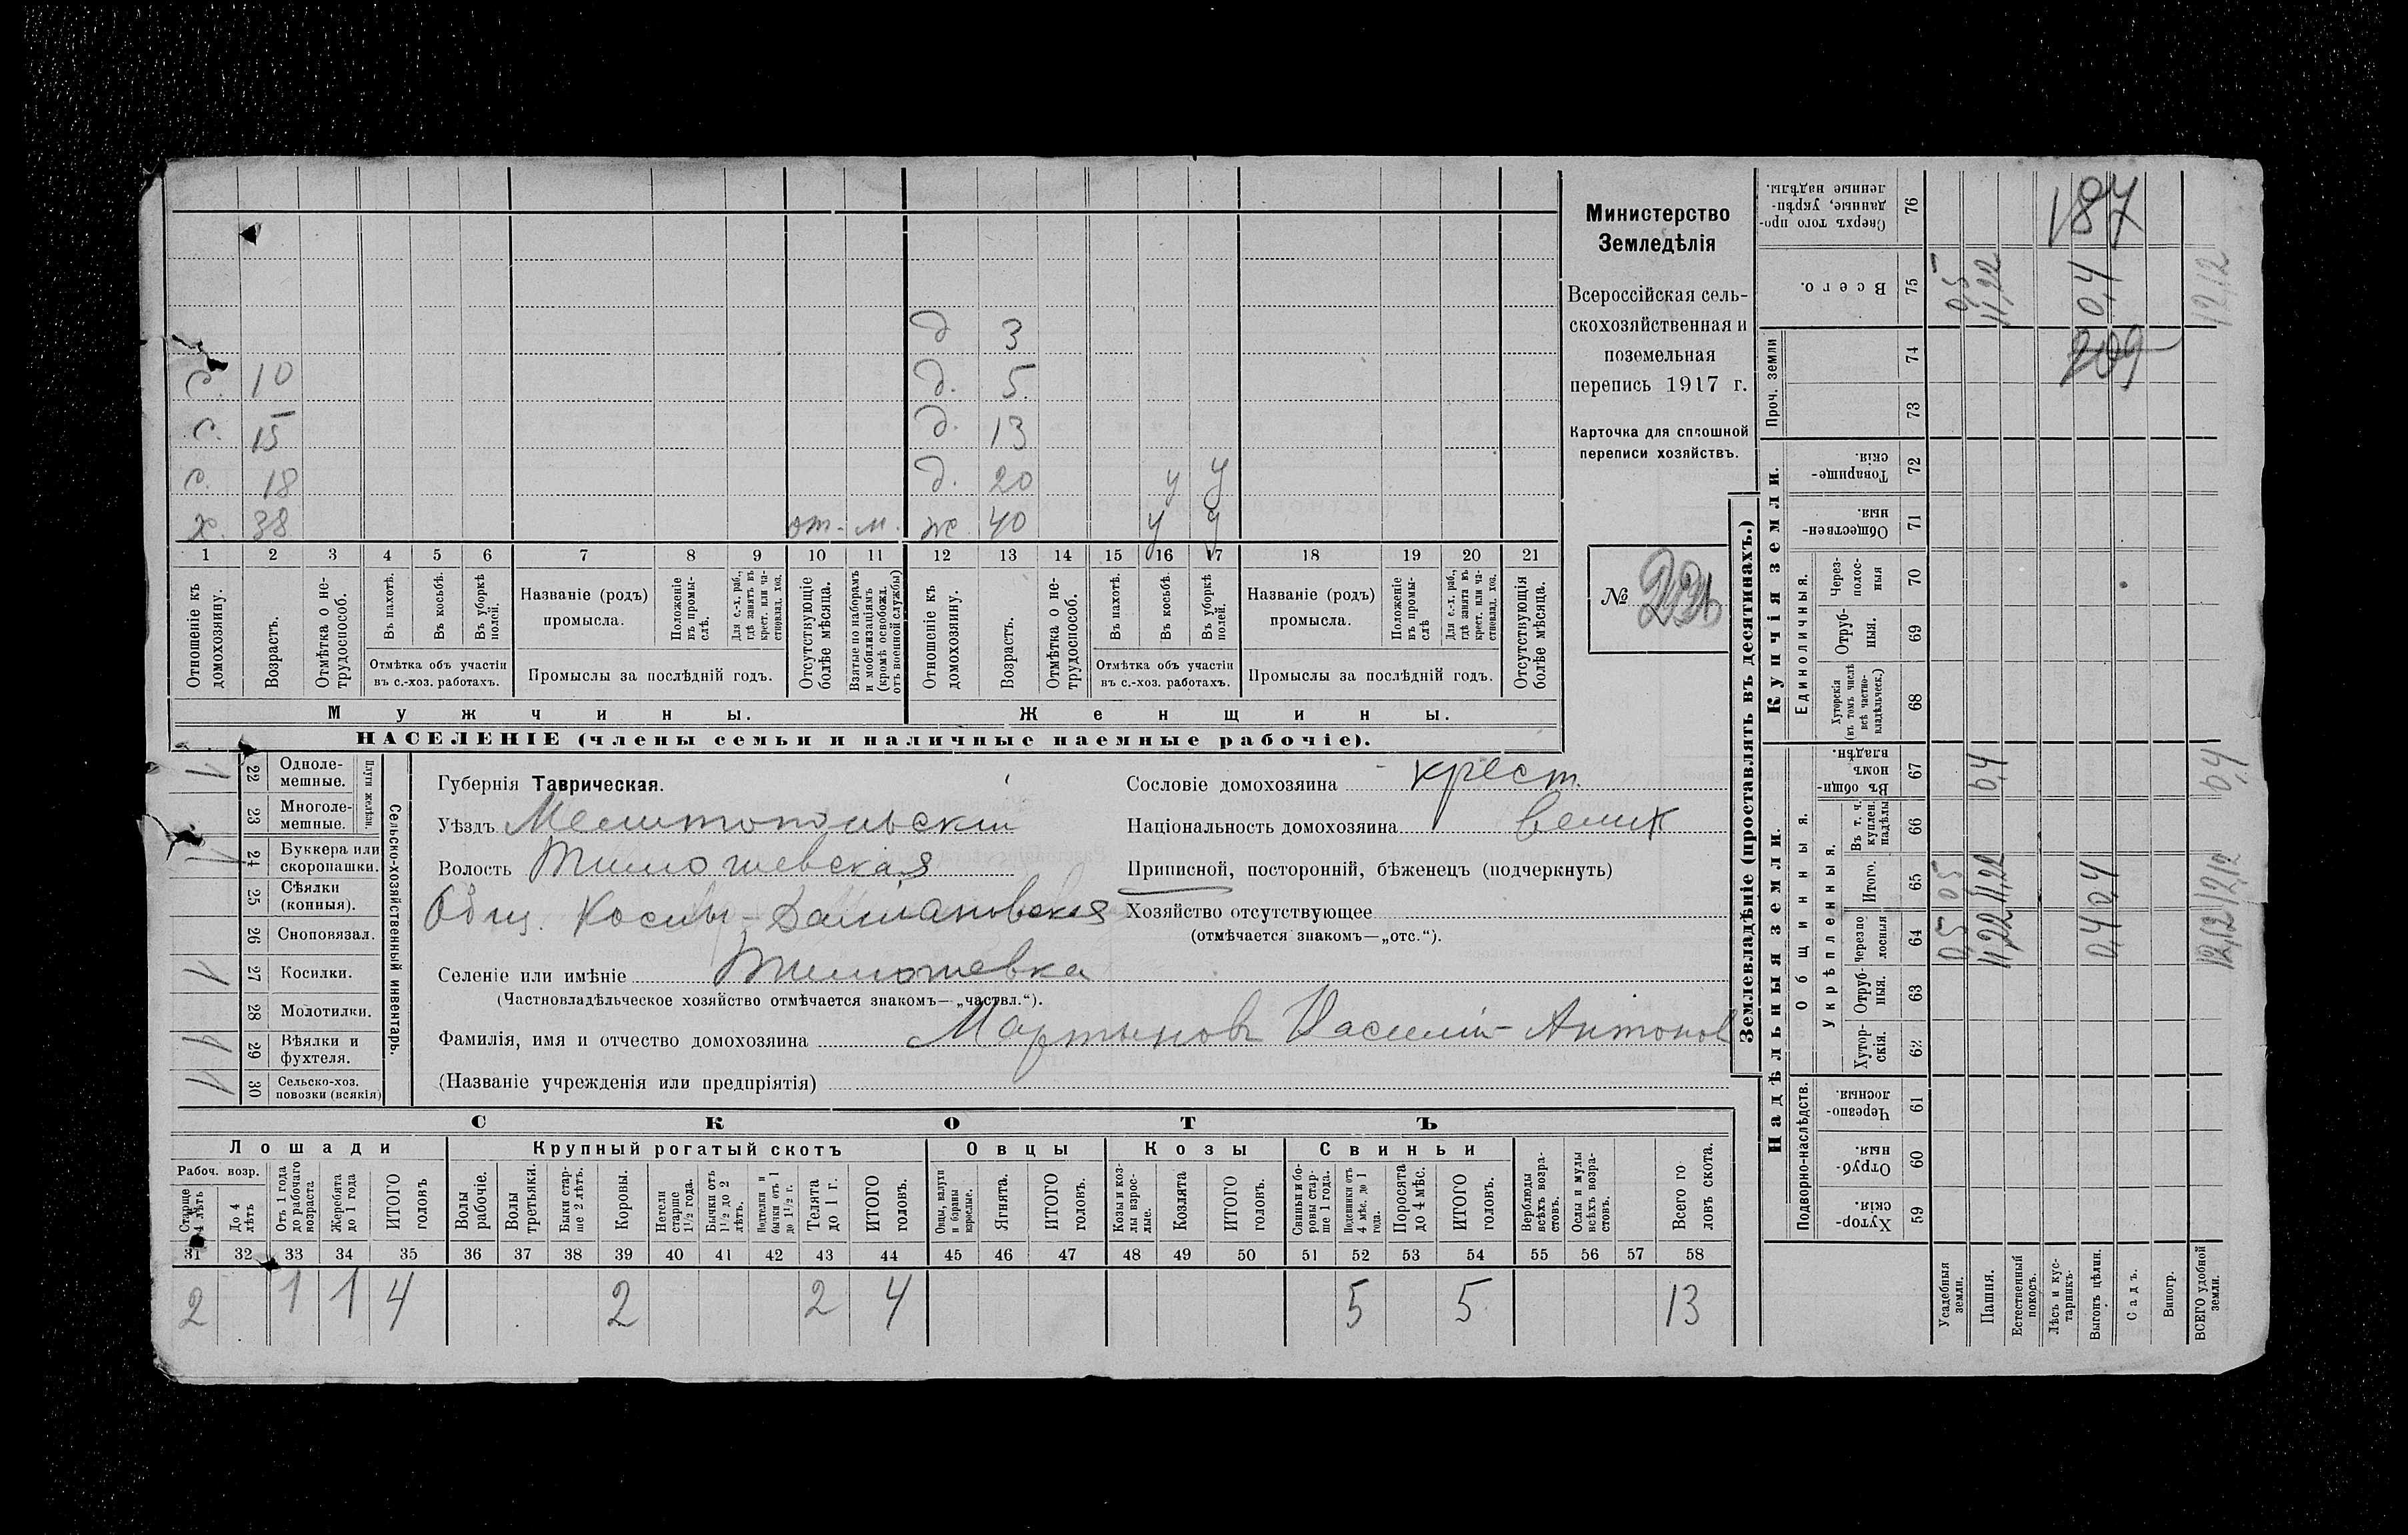 Министерство
Земледѣлія
Всероссійская сель-
скохозяйственная и
поземельная
перепись 1917 г.
Карточка для сплошной
переписи хозяйствъ.
№
д 3
с. 10 д. 5.
с. 15 д. 13
с. 18 д. 20 у у
х. 38 от. м. ж. 40 у у
1 2 3 4 5 6 7 8 9 10 11 12 13 14 15 16 17 18 19 20 21
Отношеніе къ домохозяину.
Возрастъ.
Отмѣтка о не-трудоспособ.
Въ пахотѣ.
Въ косьбѣ.
Въ уборкѣ полей.
Отмѣтка объ участіи
въ с.-хоз. работахъ.
Названіе (родъ)
промысла.
Положеніе въ промы-слѣ.
Для с.-х. раб., гдѣ занятъ въ крест. или ча-ствовлад. хоз.
Промыслы за послѣдній годъ.
Отсутствующіе болѣе мѣсяца.
Взятые по наборамъ и мобилизаціямъ (кромѣ освобожд. отъ военной службы)
Отношеніе къ домохозяину.
Возрастъ.
Отмѣтка о не-трудоспособ.
Въ пахотѣ.
Въ косьбѣ.
Въ уборкѣ полей.
Отмѣтка объ участіи
въ с.-хоз. работахъ.
Названіе (родъ)
промысла.
Положеніе въ промы-слѣ
Для с.-х. раб., гдѣ занята въ крест. или ча-ствовлад. хоз.
Промыслы за послѣдній годъ.
Отсутствующія болѣе мѣсяца.
Мужчины. Женщины.
НАСЕЛЕНІЕ (члены семьи и наличные наемные рабочіе).
Сельско-хозяйственный инвентарь.
Плуги желѣзн.
1 22 Однолемешные.
23 Многолемешные.
1 24 Буккера или скоропашки.
25 Сѣялки (конныя).
26 Сноповязал.
1 27 Косилки.
28 Молотилки.
1 29 Вѣялки и фухтеля.
1 30 Сельско-хоз. повозки (всякія)
Губернія Таврическая.
Уѣздъ Мелитопольскій
Волость Тимошевская
Общ. Косых-
Селеніе или имѣніе Тимошевка
(Частновладѣльческое хозяйство отмѣчается знакомъ—„частвл.“).
Фамилія, имя и отчество домохозяина Мартыновъ Василій Антонов
(Названіе учрежденія или предпріятія)
Сословіе домохозяина крест.
Національность домохозяина велик
Приписной, посторонній, бѣженецъ (подчеркнуть)
Хозяйство отсутствующее
(отмѣчается знакомъ—„отс.“).
СКОТЪ
Лошади Крупный рогатый скотъ Овцы Козы Свиньи
Рабоч. возр.
Старше 4 лѣтъ
До 4 лѣтъ
Отъ 1 года до рабочаго возраста
Жеребята до 1 года
ИТОГО головъ
Волы рабочіе.
Волы третьяки.
Быки стар-ше 2 лѣтъ.
Коровы.
Нетели старше 1½ года.
Бычки отъ 1½ до 2 лѣтъ.
Подтелки и бычки отъ 1 до 1½ г.
Телята до 1 г.
ИТОГО головъ.
Овцы, валухи и бараны взрослые.
Ягнята.
ИТОГО головъ.
Козы и коз-лы взрос-лые.
Козлята
ИТОГО головъ.
Свиньи и бо-ровы стар-ше 1 года.
Подсвинки отъ 4 мѣс. до 1 года.
Поросята до 4 мѣс.
ИТОГО головъ.
Верблюды всѣхъ возра-стовъ.
Ослы и мулы всѣхъ возра-стовъ.
Всего го ловъ скота.
31 32 33 34 35 36 37 38 39 40 41 42 43 44 45 46 47 48 49 50 51 52 53 54 55 56 57 58
2 1 1 4 2 2 4 5 5 13
Землевладѣніе (проставлять въ десятинахъ.)
Надѣльныя земли. Купчія земли.
Подворно-наслѣдств. Общинныя. Единоличныя. Проч. земли
Укрѣпленныя.
Хутор-скія. 59
Отруб-ныя. 60
Черезпо-лосныя. 61
Хутор-скія. 62
Отруб-ныя. 63
Черезпо лосныя 64
Итого. 65
Въ т. ч. куплен. надѣлы 66
Въ общи-номъ владѣн. 67
Хуторскія (въ томъ числѣ всѣ частно-владѣльческ.) 68
Отруб-ныя. 69
Через-полос-ныя 70
Обществен-ныя. 71
Товарище-скія. 72
73
74
Всего. 75
Сверхъ того про-данные, укрѣп-ленные надѣлы. 76
Усадебныя земли. 0,5 0,5 0,5
Пашня. 11,22 11,22 11,22
Естественный покосъ.
Лѣсъ и кус-тарникъ.
Выгонъ цѣлин. 0,4 0,4 0,4
Садъ.
Виногр.
ВСЕГО удобной земли. 12,12 12,12 0,4 12,12
0,4
187
209